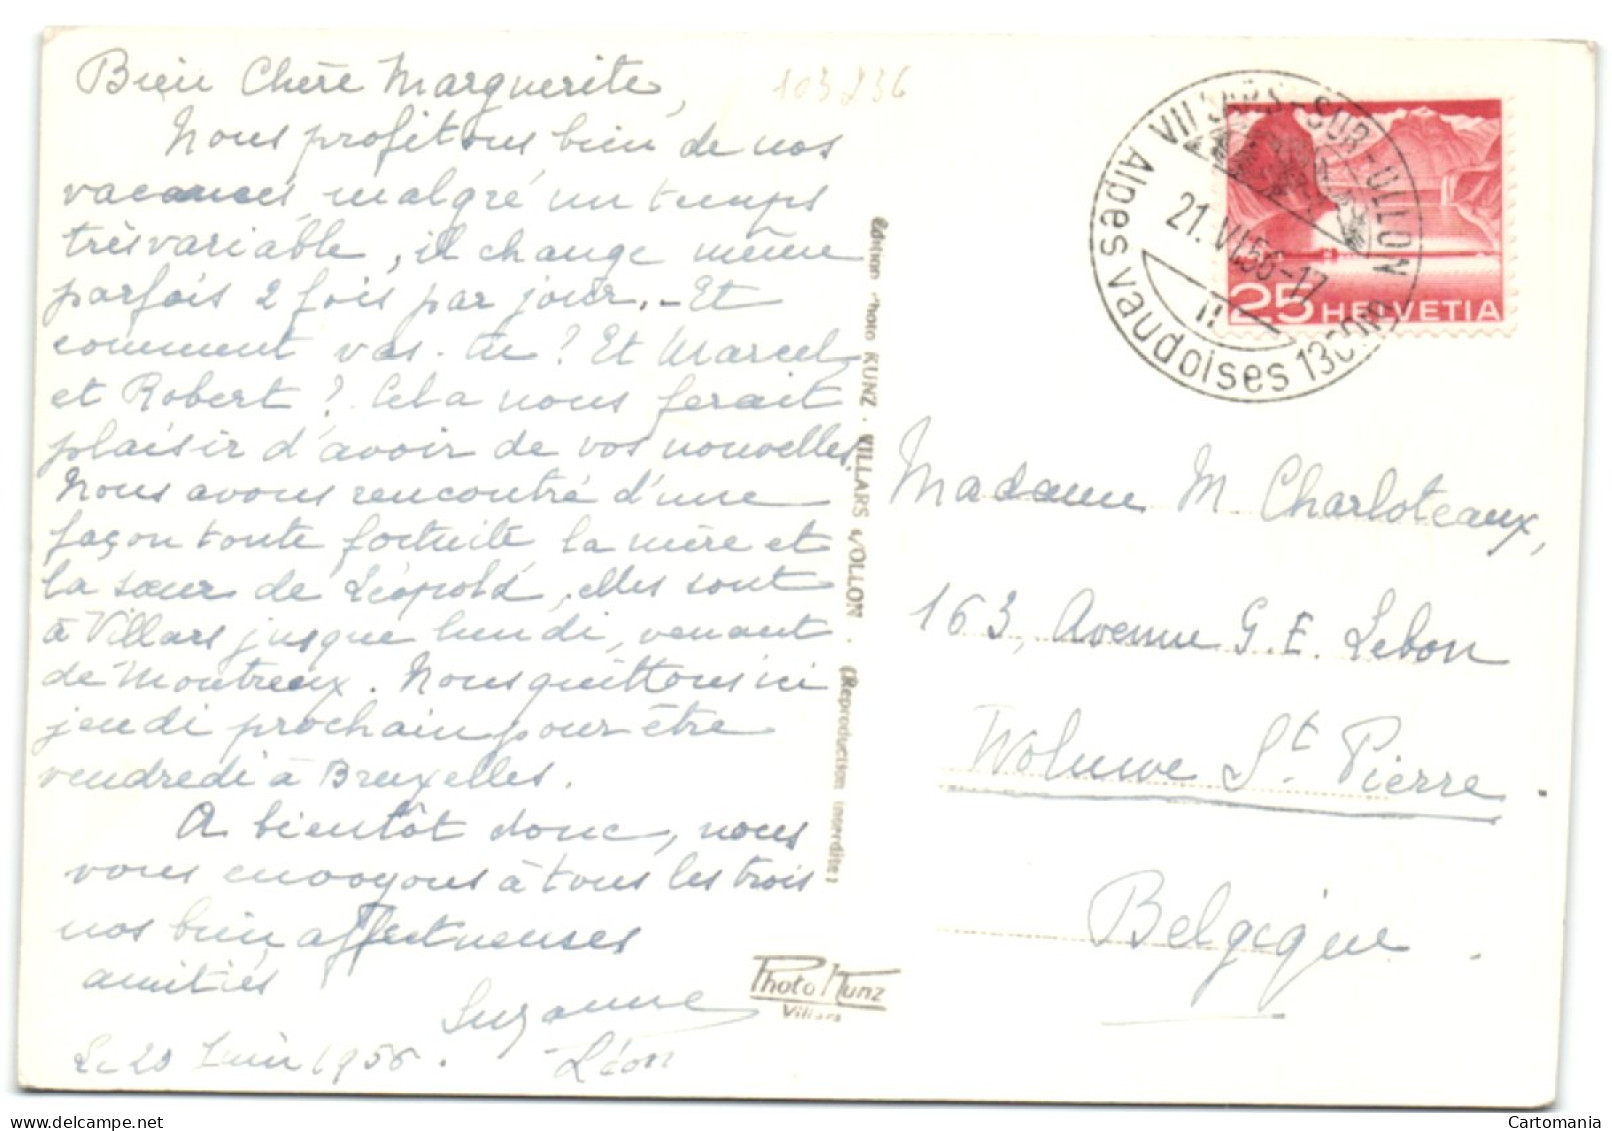 Bien Chère Marguerite,
Nous profitons bien de nos
vacances malgré un temps
très variable, il change même
parfois 2 fois par jour. - Et
comment vas-tu ? Et Marcel
et Robert ? Cela nous ferait
plaisir d'avoir de vos nouvelles.
Nous avons rencontré d'une
façon toute fortuite la mère et
la sœur de Léopold, elles sont
à Villars jusque lundi, venant
de Montreux. Nous quittons ici
jeudi prochain pour être
vendredi à Bruxelles.
A bientôt donc, nous
vous envoyons à tous les trois
nos bien affectueuses
amitiés
Suzanne
Léon
Le 20 Juin 1956.
103236
Edition Photo KUNZ - VILLARS s/OLLON. (Reproduction interdite)
Photo Kunz
Villars
VILLARS-SUR-OLLON
21.VI.56-17
Alpes vaudoises 1300m
25 HELVETIA
Madame M. Charloteaux,
163, Avenue G.E. Lebon
Woluwe St Pierre.
Belgique.
Cartomania